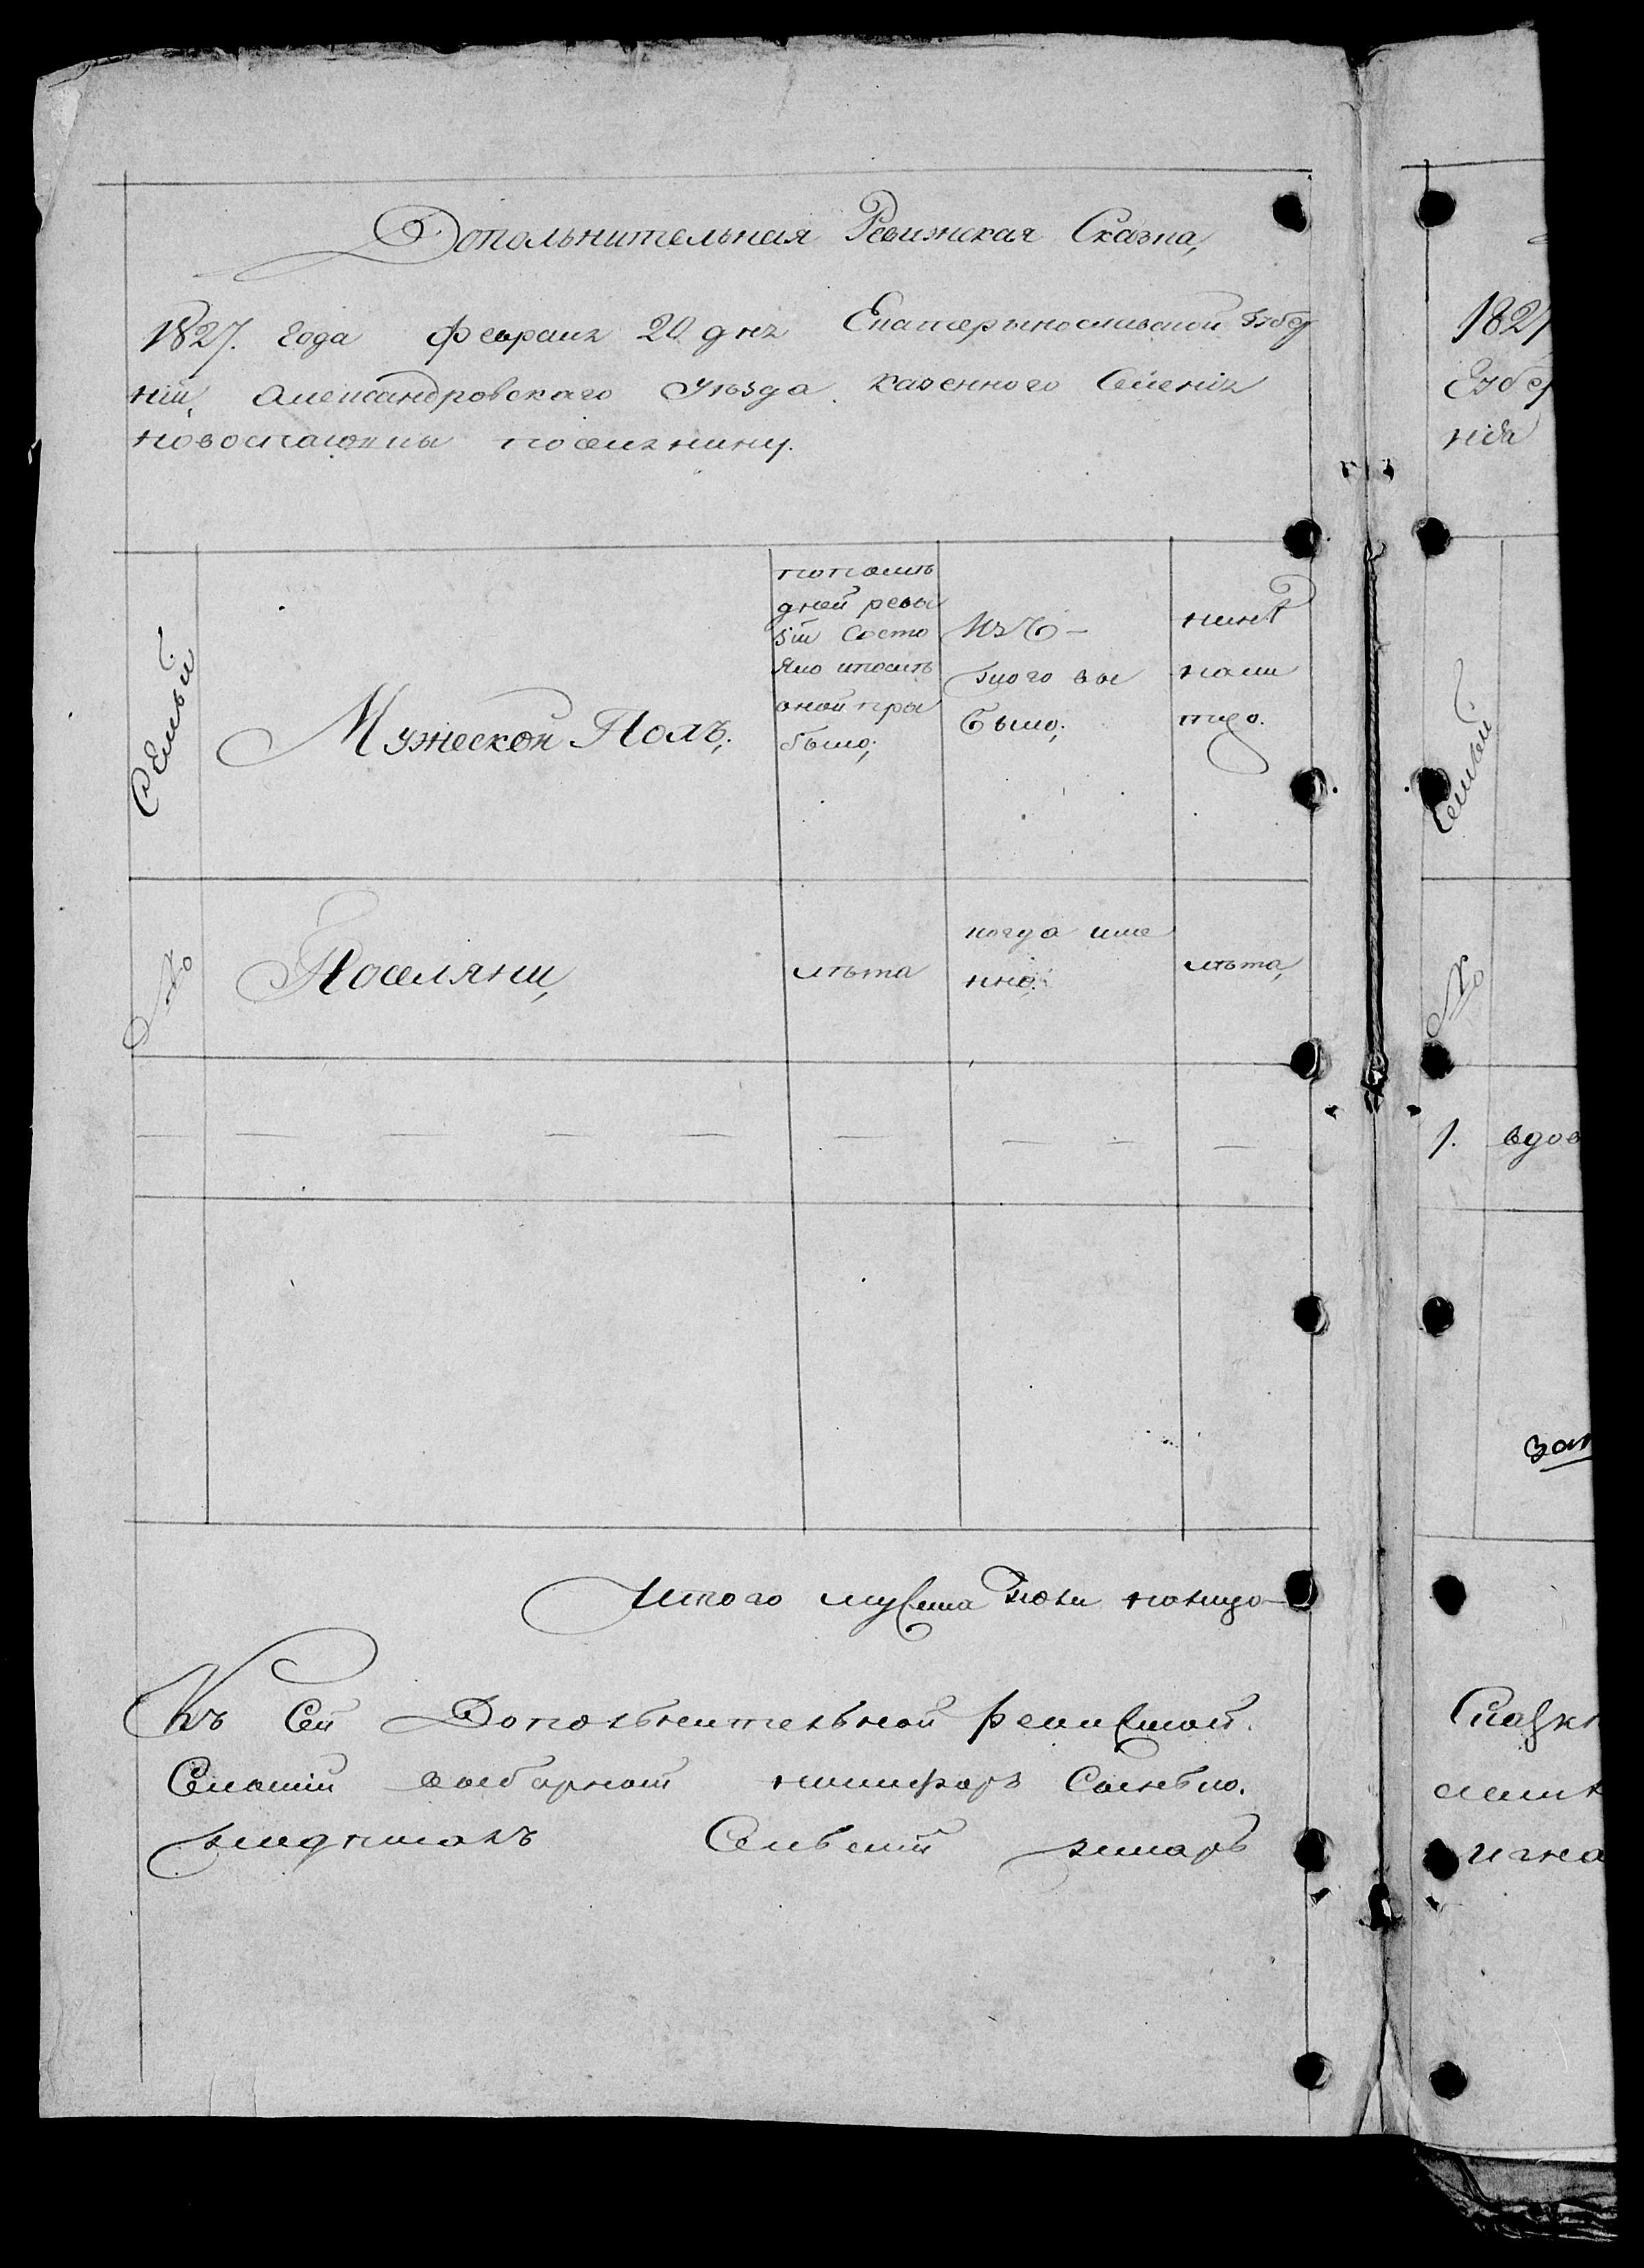 Допольнительная Ревижская Сказка,
1827. года февраля 20 дня Екатерынославской Губер
ній, Александровского Уъзда. казенного Селенія
новоспасовки поселянину.
Семьи
Мужеской Полъ,
попослъ
дней ревы
зіи Состо
яло ипослъ
оной при
было;
Изъ
того вы
было;
нинѣ
нали
ицо.
№
Поселяни,
лѣта
когда име
нно;
лѣта,
Итого мужеска пола налицо
Къ Сей Допольнительной ревижской
Скаски выборной никифоръ
Сельскій писарь
1827
Губер
нія
Семьи
№
1. вдов